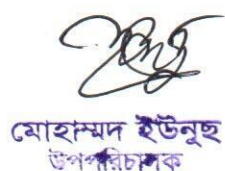 মোহাম্মদ ইউনূছ
উপপরিচালক